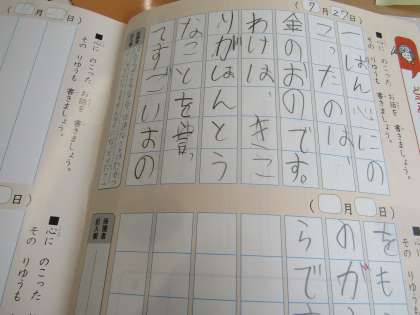 (7月27日)
■心に のこった お話を 書きましょう。
その りゆうも 書きましょう。
一ばん心にの
こったのは、
金のおのです。
わけは、きこ
りがほんとう
なことを言っ
てすごいもの
(月 日)
をも
のが
らです
保護者
記入欄
(月 日)
■心に のこった お話を 書きましょう。
その りゆうも 書きましょう。
日)
■心に のこった
その りゆうも